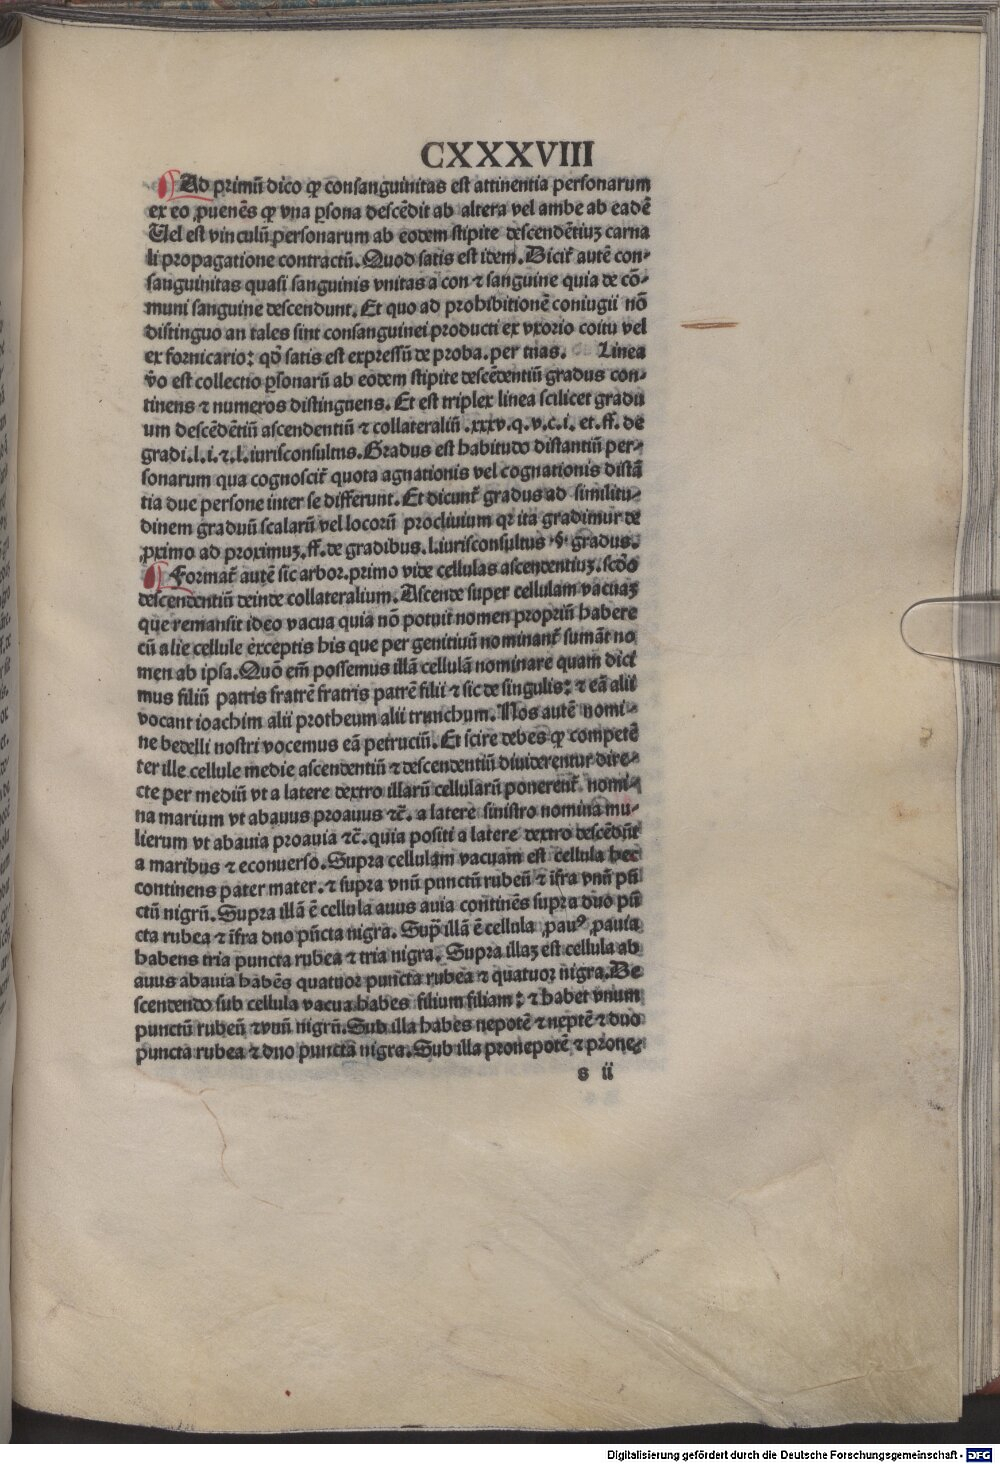 CXXXVIII
¶ Ad primū dico ꝙ consanguinitas est attinentia personarum
ex eo ꝓuenēs ꝙ vna ꝑsona descēdit ab altera vel ambe ab eadē
Uel est vinculū personarum ab eodem stipite descendētiuꝫ carna
li propagatione contractū. Quod satis est idem. Dicit̄ autē con⸗
sanguinitas quasi sanguinis vnitas a con ⁊ sanguine quia de cō⸗
muni sanguine descendunt. Et quo ad prohibitionē coniugii nō
distinguo an tales sint consanguinei producti ex vxorio coitu vel
ex fornicario: qd̄ satis est expressū de proba. per tuas. Linea
v̄o est collectio ꝑsonarū ab eodem stipite descēdentiū gradus con⸗
tinens ⁊ numeros distinguens. Et est triplex linea scilicet gradu
um descēdētiū ascendentiū ⁊ collateraliū .xxxv.q.v.c.i. et. ff. de
gradi.l.i.⁊.l.iurisconsultus. Gradus est habitudo distantiū per⸗
sonarum qua cognoscit̄ quota agnationis vel cognationis distā
tia due persone inter se differunt. Et dicunt̄ gradus ad similitu⸗
dinem graduū scalarū vel locorū procliuium qr ita gradimur de
ꝓximo ad proximuꝫ. ff. de gradibus. l. iurisconsultus .§. gradus.
¶ Format̄ autē sic arbor. primo vide cellulas ascendentiuꝫ. scd̄o
descendentiū deinde collateralium. Ascende super cellulam vacuaꝫ
que remansit ideo vacua quia nō potuit nomen propriū habere
cū alie cellule exceptis his que per genitiuū nominant̄ sumāt no
men ab ipsa. Quō em̄ possemus illā cellulā nominare quam dici
mus filiū patris fratrē fratris patrē filii ⁊ sic de singulis: ⁊ eā alii
vocant ioachim alii protheum alii trunchum. Nos autē nomi⸗
ne bedelli nostri vocemus eā petruciū. Et scire debes ꝙ competē
ter ille cellule medie ascendentiū ⁊ descendentiū diuiderentur dire⸗
cte per mediū vt a latere dextro illarū cellularū ponerent̄ nomi⸗
na marium vt abauus proauus ⁊c̄. a latere sinistro nomina mu⸗
lierum vt abauia proauia ⁊c̄. quia positi a latere dextro descēdūt
a maribus ⁊ econuerso. Supra cellulam vacuam est cellula hec
continens pater mater. ⁊ supra vnū punctū rubeū ⁊ īfra vnū pū
ctū nigrū. Supra illā ē cellula auus auia continēs supra duo pū
cta rubea ⁊ īfra duo pūcta nigra. Supꝭ illā ē cellula ꝓauꝰ ꝓauia
habens tria puncta rubea ⁊ tria nigra. Supra illaꝫ est cellula ab
auus abauia habēs quatuor puncta rubea ⁊ quatuor nigra. De
scendendo sub cellula vacua habes filium filiam: ⁊ habet vnum
punctū rubeū ⁊ vnū nigrū. Sub illa habes nepotē ⁊ neptē ⁊ duo
puncta rubea ⁊ duo puncta nigra. Sub illa pronepotē ⁊ prone⸗
s ii
Digitalisierung gefördert durch die Deutsche Forschungsgemeinschaft - DFG